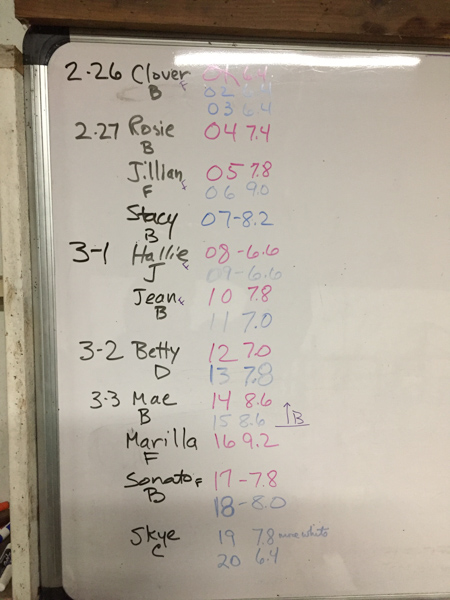 2.26 Clover 01 6.4
B F 02 6.4
03 6.4
2.27 Rosie 04 7.4
B
Jillian F 05 7.8
F 06 9.0
Stacy 07-8.2
B
3-1 Hallie F 08-6.6
J 09-6.6
Jean F 10 7.8
B 11 7.0
3-2 Betty 12 7.0
D 13 7.8
3.3 Mae 14 8.6
B 15 8.6 ↑B
Marilla 16 9.2
F
Sonata F 17-7.8
B 18-8.0
Skye 19 7.8 more white
C 20 6.4